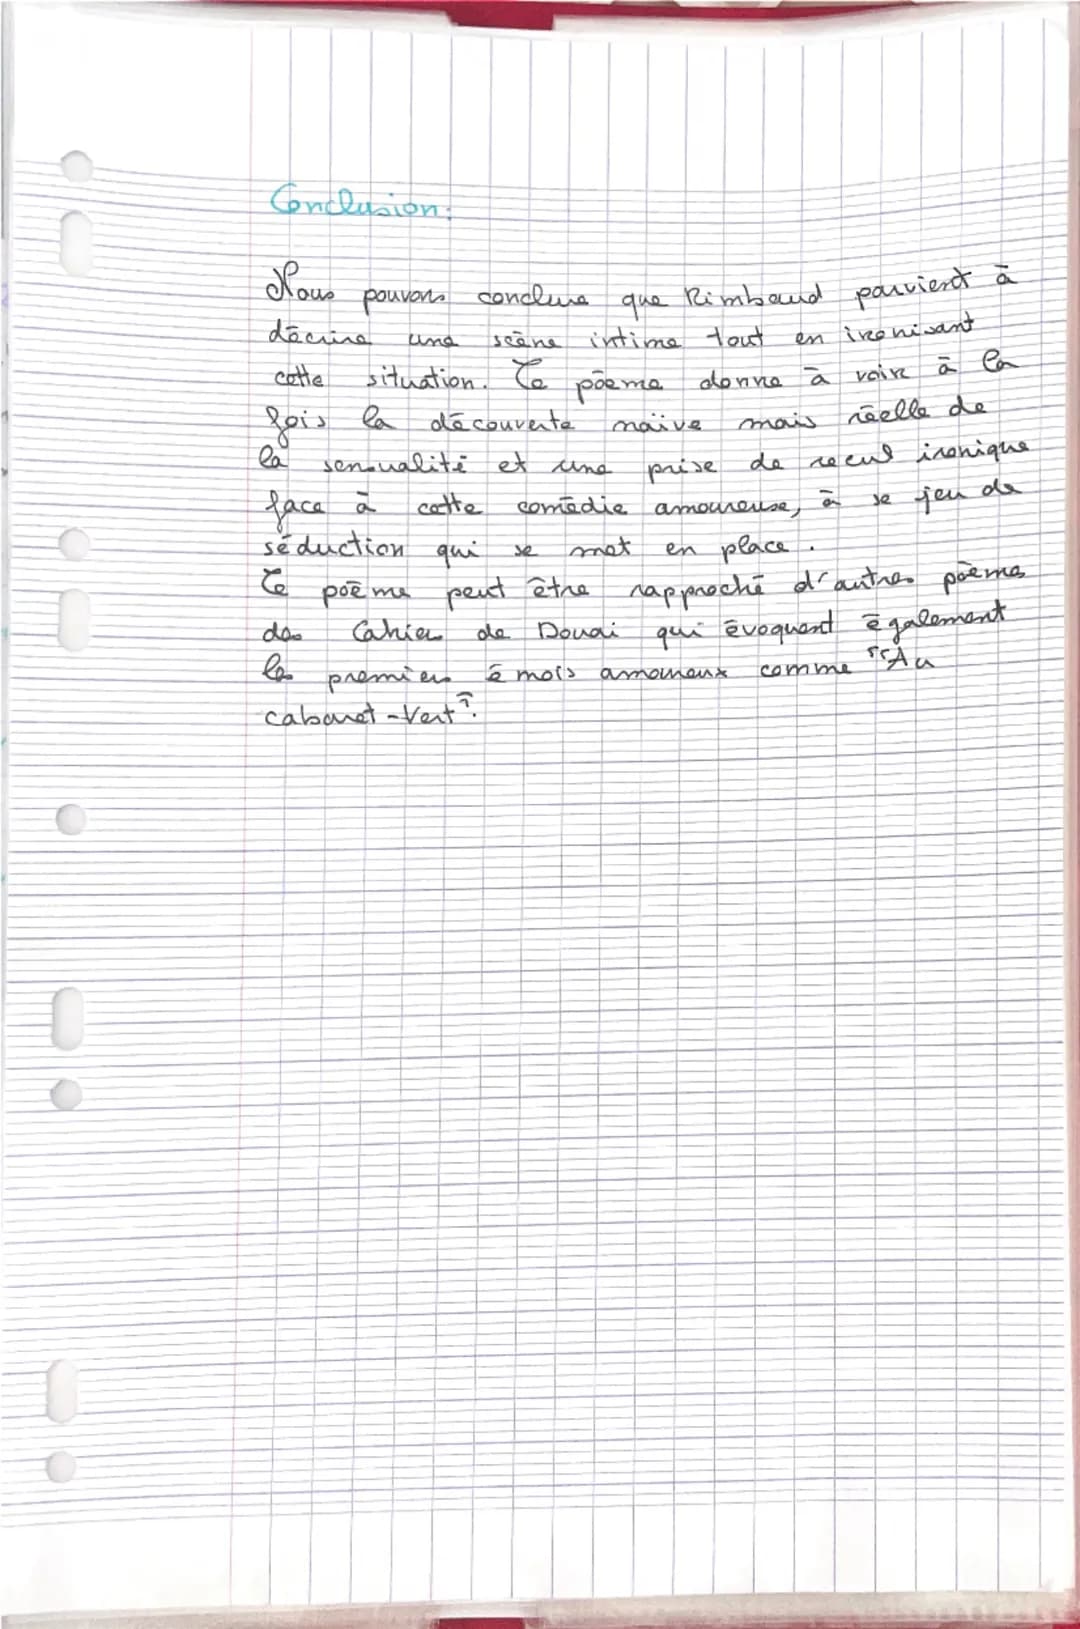 Conclusion:
Nous pouvons conclure que Rimbaud parvient à
décrire une scène intime tout en ironisant
cette situation. Ce poème donne à voir à la
fois la découverte naïve mais réelle de
la sensualité et une prise de recul ironique
face à cette comédie amoureuse, à se jeu de
séduction qui se met en place.
Ce poème peut être rapproché d'autres poèmes
des Cahier de Douai qui évoquent également
les premiers émois amoureux comme "Au
cabaret-Vert".